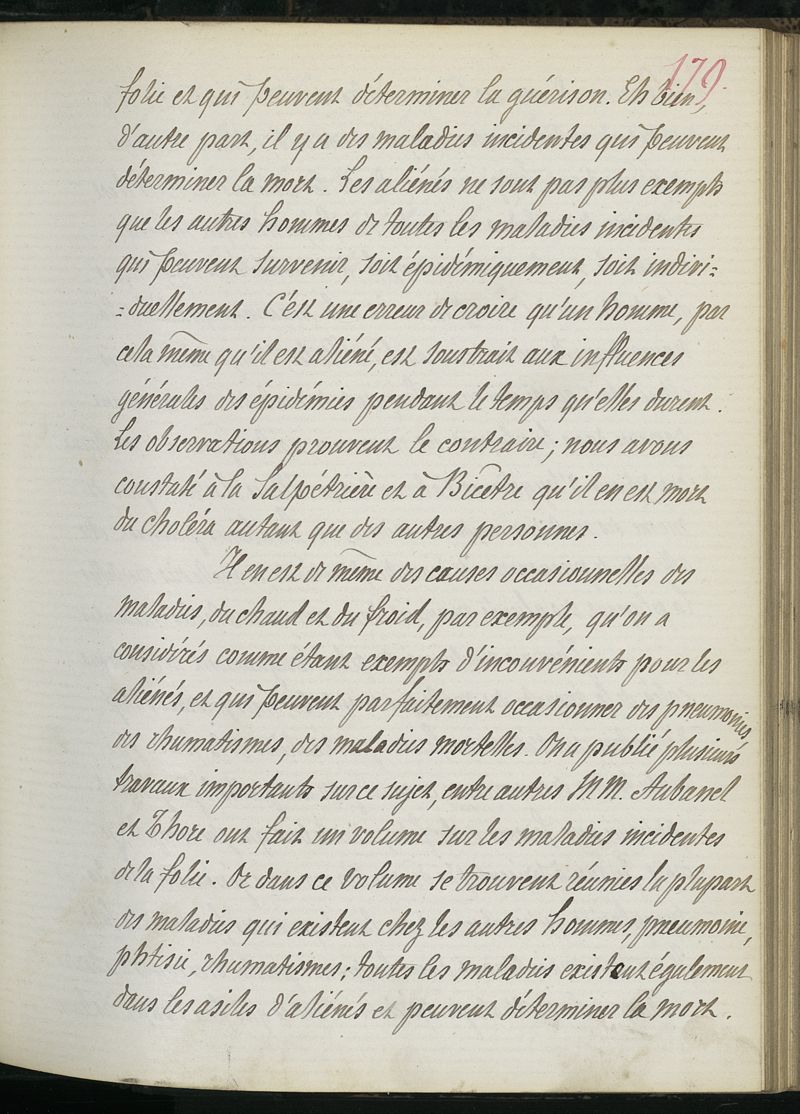 179
folie et qui peuvent déterminer la guérison. Eh bien,
d'autre part, il y a des maladies incidentes qui peuvent
déterminer la mort. Les aliénés ne sont pas plus exempts
que les autres hommes de toutes les maladies incidentes
qui peuvent survenir, soit épidémiquement, soit indivi=
=duellement. C'est une erreur de croire qu'un homme, par
cela même qu'il est aliéné, est soustrait aux influences
générales des épidémies pendant le temps qu'elles durent.
Les observations prouvent le contraire; nous avons
constaté à la Salpétrière et à Bicêtre qu'il en est mort
du choléra autant que des autres personnes.
Il en est de même des causes occasionnelles des
maladies, du chaud et du froid, par exemple, qu'on a
considérés comme étant exempts d'inconvénients pour les
aliénés, et qui peuvent parfaitement occasionner des pneumonies,
des rhumatismes, des maladies mortelles. On a publié plusieurs
travaux importants sur ce sujet, entre autres MM. Aubanel
et Thore ont fait un volume sur les maladies incidentes
de la folie. Or dans ce volume se trouvent réunies la plupart
des maladies qui existent chez les autres hommes, pneumonie,
phtisie, rhumatismes; toutes les maladies existent également
dans les asiles d'aliénés et peuvent déterminer la mort.